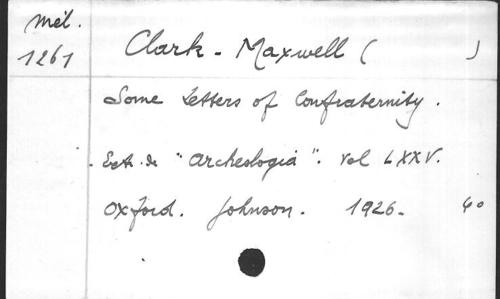 Mél.
1261
Clark - Maxwell ( )
Some Letters of Confraternity.
Ext. de "Archeologia". Vol LXXV.
Oxford. Johnson. 1926. 4o